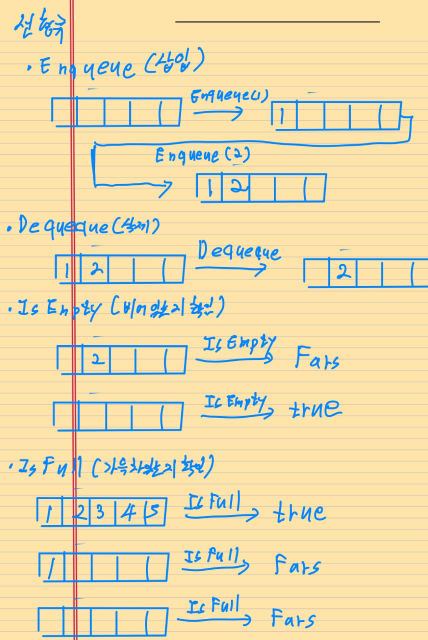 선형큐
· Enqueue (삽입)
Enqueue(1)
1
Enqueue(2)
1 2
· Dequeque (삭제)
1 2 Dequeque 2
· Is Empty (비어있는지 확인)
2 Is Empty Fars
Is Empty true
· Is Full (가득차있는지 확인)
1 2 3 4 5 Is Full true
1 Is Full Fars
Is Full Fars